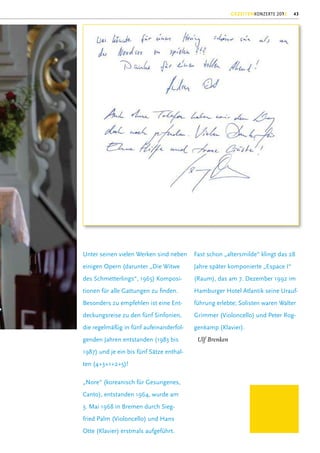 GEZEITENKONZERTE 201 43
Was könnte für einen Hering schöner sein als an
der Nordsee zu spielen !!!
Danke für einen tollen Abend!
Auch ohne Telefon haben wir den Weg
doch noch gefunden. Vielen Dank für
Ihre Hilfe und Ihre Gäste!
Unter seinen vielen Werken sind neben
einigen Opern (darunter „Die Witwe
des Schmetterlings“, 1965) Komposi-
tionen für alle Gattungen zu finden.
Besonders zu empfehlen ist eine Ent-
deckungsreise zu den fünf Sinfonien,
die regelmäßig in fünf aufeinanderfol-
genden Jahren entstanden (1983 bis
1987) und je ein bis fünf Sätze enthal-
ten (4+5+1+2+5)!
„Nore“ (koreanisch für Gesungenes,
Canto), entstanden 1964, wurde am
3. Mai 1968 in Bremen durch Sieg-
fried Palm (Violoncello) und Hans
Otte (Klavier) erstmals aufgeführt.
Fast schon „altersmilde“ klingt das 28
Jahre später komponierte „Espace I“
(Raum), das am 7. Dezember 1992 im
Hamburger Hotel Atlantik seine Urauf-
führung erlebte; Solisten waren Walter
Grimmer (Violoncello) und Peter Rog-
genkamp (Klavier).
Ulf Brenken